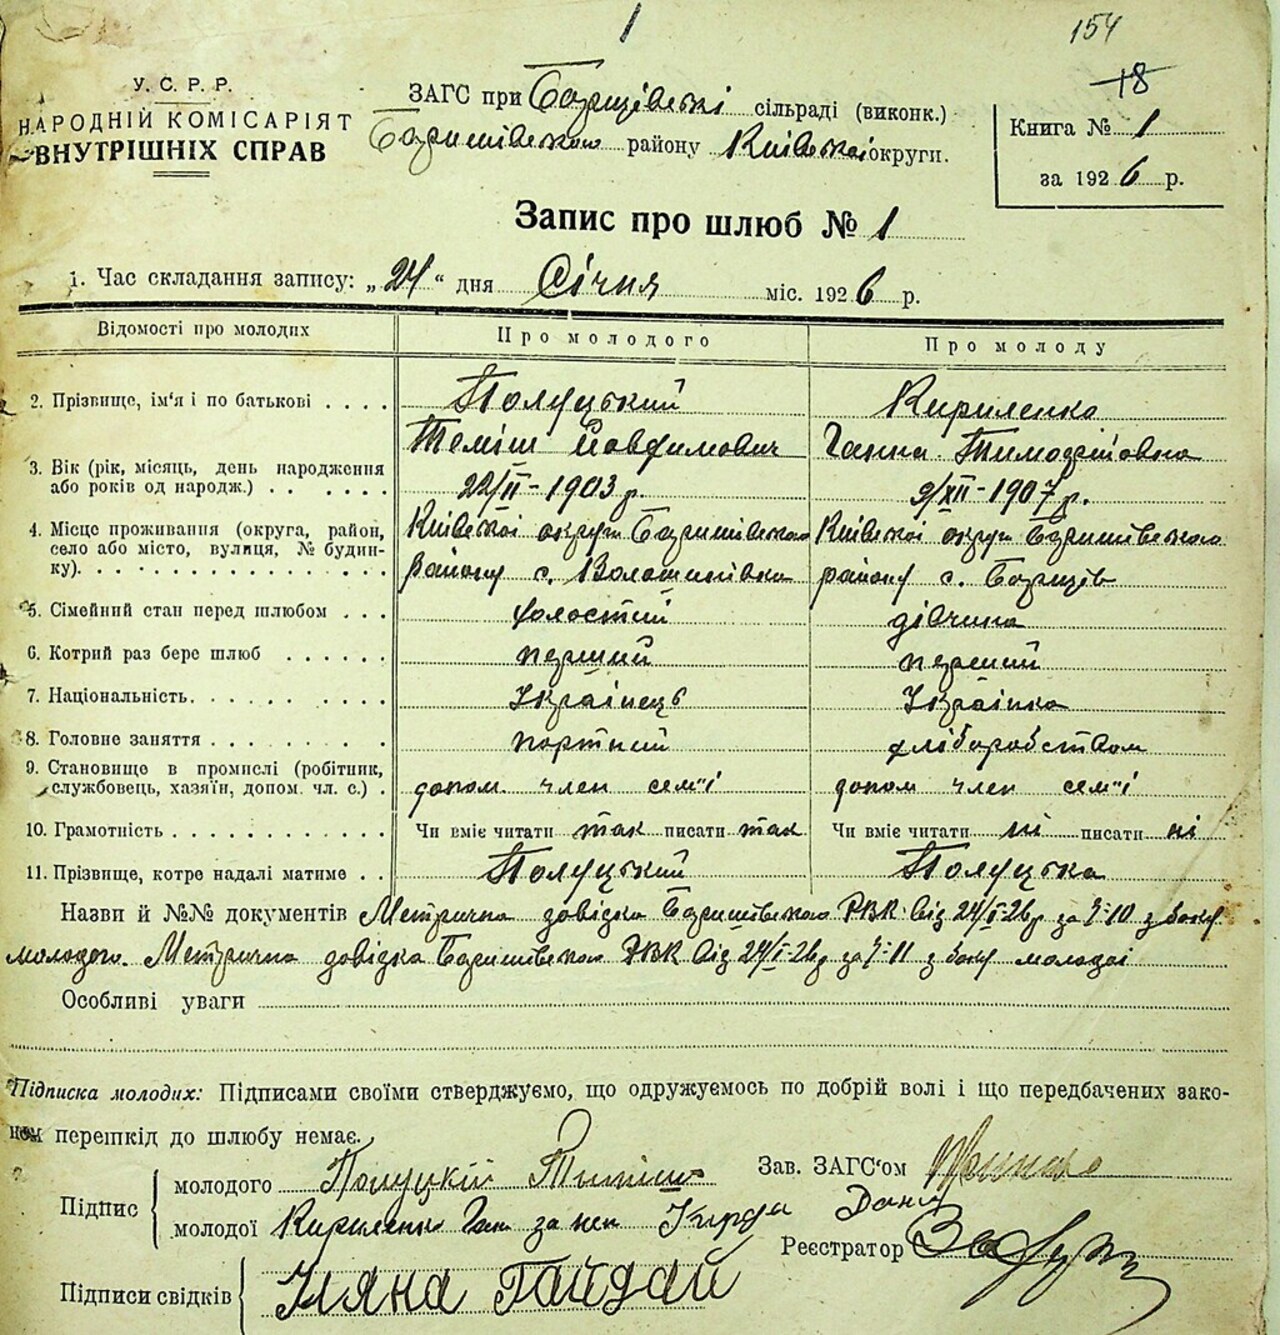 1
154
18
У. С. Р. Р.
НАРОДНІЙ КОМІСАРІЯТ
ВНУТРІШНІХ СПРАВ
ЗАГС при Борщівські сільраді (виконк.)
Баришівського району Київської округи.
Книга № 1
за 1926 р.
Запис про шлюб № 1
1. Час складання запису: „24“ дня Січня міс. 1926 р.
Відомості про молодих Про молодого Про молоду
2. Прізвище, ім'я і по батькові . . . . Полуцький Кириленко
Йовфимович Ганна Тимофіївна
3. Вік (рік, місяць, день народження
або років од народж.) . . . . . . 22/II - 1903 р. 9/XII - 1907 р.
4. Місце проживання (округа, район,
село або місто, вулиця, № будин-
ку). . . . . . . . . . . . . . . .
Київської округи Баришівського Київської округи Баришівського
району с. Волошинівка району с. Борщів
5. Сімейний стан перед шлюбом . . . холостий дівчина
6. Котрий раз бере шлюб . . . . . . перший перший
7. Національність. . . . . . . . . . Українець Українка
8. Головне заняття . . . . . . . . . портний хліборобством
9. Становище в промислі (робітник,
службовець, хазяїн, допом. чл. с.) . допом. член сем"ї допом член сем"ї
10. Грамотність . . . . . . . . . . . Чи вміє читати так писати так Чи вміє читати ні писати ні
11. Прізвище, котре надалі матиме . . Полуцький Полуцька
Назви й №№ документів Метрична довідка Баришівського РВК від 24/I-26р за № 10 з боку
молодого. Метрична довідка Баришівського РВК від 24/I-26р за № 11 з боку молодої
Особливі уваги
Підписка молодих: Підписами своїми стверджуємо, що одружуємось по добрій волі і що передбачених зако-
ном перешкід до шлюбу немає.
Підпис
молодого Полуцкій
молодої Кириленко Ган за неп
Зав. ЗАГС'ом
Реєстратор
Підписи свідків Уляна Гайдай